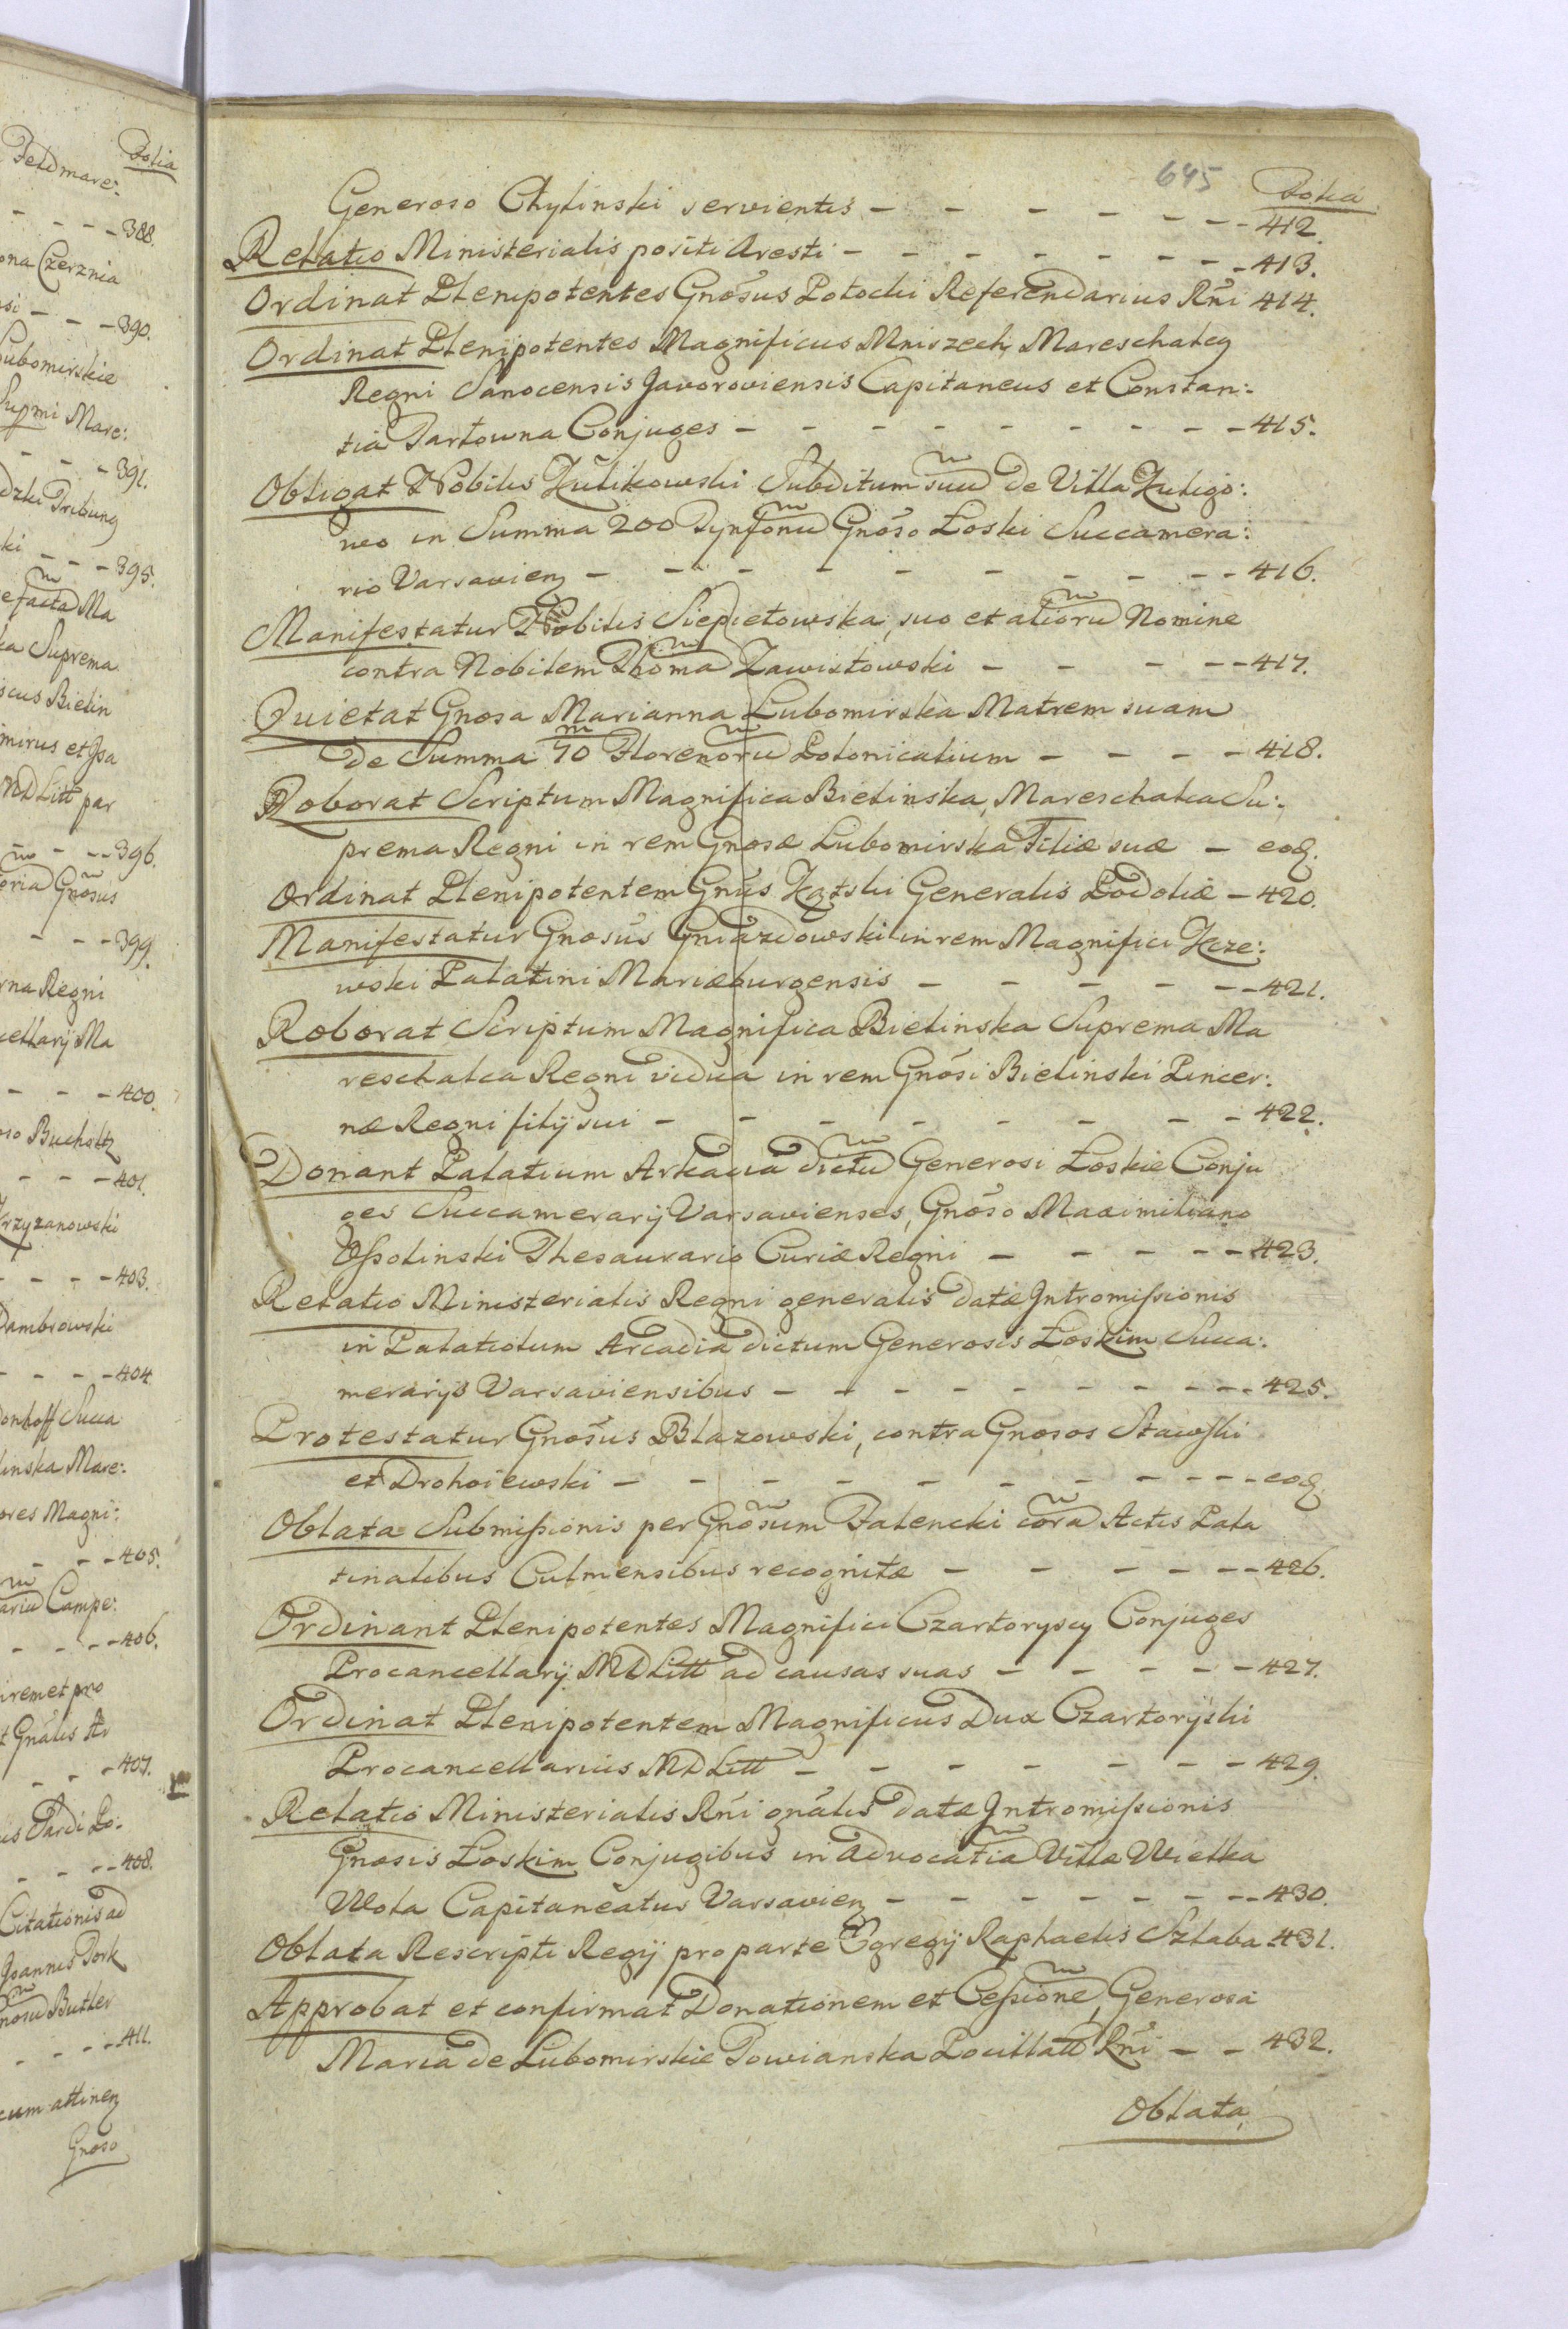 Feldmare:
Folia
- - - 388.
ona Czerznia
si - - - 390.
Lubomirskie
Supmi Mare:
- - - 391.
dzki Tribung
ki - - - 395.
efacta Ma
ka Suprema
scus Bielin
imirus et Isa
MDLitt par
- - - 396.
oria Gnosus
- - - 399.
rna Regni
cellarij Ma
- - - 400.
oso Bucholtz
- - - 401.
Krzyzanowski
- - - 403.
Dambrowski
- - - 404.
Donhoff Succa
linska Mare:
ores Magni:
- - - 405.
aria Campe:
- - - 406.
in rem et pro
t Gnalis Ar
- - - 407.
- - - 408.
Citationis ad
Joannis Jork
nosu Butler
- - - 411.
cum attinen
Gnoso
645
Folia
Generoso Chylinski servientis - - - - - - - 412.
Relatio Ministerialis positi Aresti - - - - - - - 413.
Ordinat Plenipotentes Gnosus Potocki Referendarius Rni 414.
Ordinat Plenipotentes Magnificus Mniszech, Mareschalcq
Regni Sanocensis Javoroviensis Capitaneus et Constan:
tia Tartowna Conjuges - - - - - - - - 415.
Obligat Nobilis Zulikowski Subditum suu de Villa Zuligo:
wo in Summa 200 Tynfonu Gnoso Łoski Succamera:
rio Varsavien - - - - - - - - - 416.
Manifestatur Nobilis Siepietowska, suo et alioru Nomine
contra Nobilem Thoma Zawistowski - - - - - 417.
Quietat Gnosa Marianna Lubomirska Matrem suam
de Summa 70 Florenoru Polonicalium - - - - 418.
Roborat Scriptum Magnifica Bielinska, Mareschalca Su:
prema Regni in rem Gnosæ Lubomirska Filiæ suæ - eod.
Ordinat Plenipotentem Gnus Kątski Generalis Podoliæ - 420.
Manifestatur Gnosus Gniazdowski in rem Magnifici Kcze:
wski Palatini Mariæburgensis - - - - - - 421.
Roborat Scriptum Magnifica Bielinska Suprema Ma
reschalca Regni vidua in rem Gnosi Bielinski Pincer:
næ Regni filij sui - - - - - - - - 422.
Donant Palatium Arkacia dictu Generosi Łoskie Conju
ges Succamerarij Varsavienses, Gnoso Maximiliano
Ossolinski Thesaurario Curiæ Regni - - - - - 423.
Relatio Ministerialis Regni generalis datæ Intromissionis
in Palatiolum Arcadia dictum Generosis Łoskim Succa:
merarijs Varsaviensibus - - - - - - - - - 425.
Protestatur Gnosus Blazowski, contra Gnosos Stawski
et Drohoiewski - - - - - - - - - - eod.
Oblata Submissionis per Gnosum Falencki cora Actis Pala
tinalibus Culmensibus recognitæ - - - - - - 426.
Ordinant Plenipotentes Magnifici Czartoryscy Conjuges
Procancellarij MDLitt ad causas suas - - - - - 427.
Ordinat Plenipotentem Magnificus Dux Czartoryski
Procancellarius MDLitt - - - - - - - 429.
Relatio Ministerialis Rni gnalis datæ Intromissionis
Gnosis Łoskim Conjugibus in Advocatia Villa Wielka
Wola Capitaneatus Varsavien - - - - - - - - 430.
Oblata Rescripti Regij pro parte Egregij Raphaelis Szlaba - 431.
Approbat et confirmat Donationem et Cessione, Generosa
Maria de Lubomirskie Towianska Pocillatt Rni - - 432.
Oblata